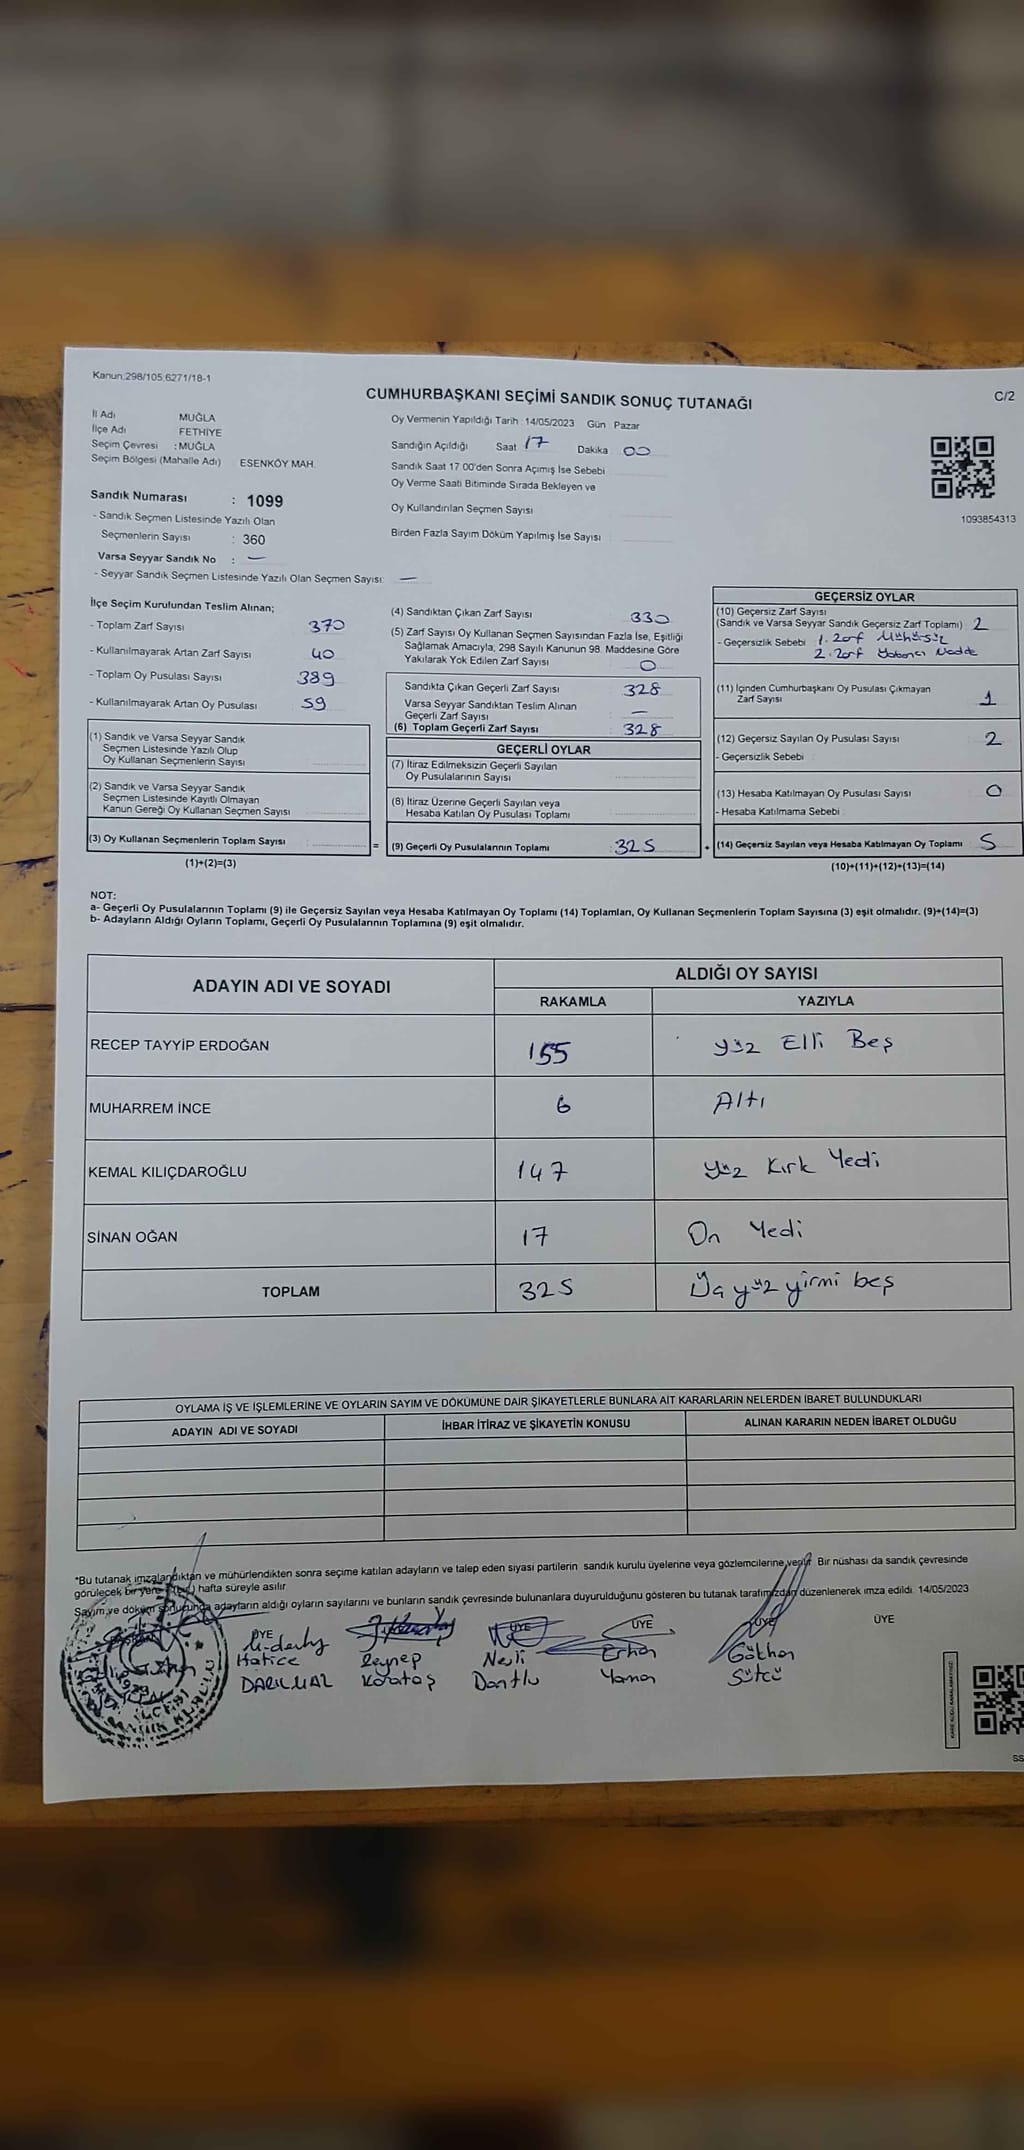 Kanun:298/105;6271/18-1
CUMHURBAŞKANI SEÇİMİ SANDIK SONUÇ TUTANAĞI
C/2
İl Adı MUĞLA
İlçe Adı FETHİYE
Seçim Çevresi : MUĞLA
Seçim Bölgesi (Mahalle Adı) ESENKÖY MAH.
Sandık Numarası : 1099
- Sandık Seçmen Listesinde Yazılı Olan
Seçmenlerin Sayısı : 360
Varsa Seyyar Sandık No : —
- Seyyar Sandık Seçmen Listesinde Yazılı Olan Seçmen Sayısı: —
Oy Vermenin Yapıldığı Tarih : 14/05/2023 Gün Pazar
Sandığın Açıldığı Saat 17 Dakika 00
Sandık Saat 17 00'den Sonra Açımış İse Sebebi
Oy Verme Saati Bitiminde Sırada Bekleyen ve
Oy Kullandırılan Seçmen Sayısı
Birden Fazla Sayım Döküm Yapılmış İse Sayısı
1093854313
İlçe Seçim Kurulundan Teslim Alınan;
- Toplam Zarf Sayısı 370
- Kullanılmayarak Artan Zarf Sayısı 40
- Toplam Oy Pusulası Sayısı 389
- Kullanılmayarak Artan Oy Pusulası 59
(1) Sandık ve Varsa Seyyar Sandık
Seçmen Listesinde Yazılı Olup
Oy Kullanan Seçmenlerin Sayısı
(2) Sandık ve Varsa Seyyar Sandık
Seçmen Listesinde Kayıtlı Olmayan
Kanun Gereği Oy Kullanan Seçmen Sayısı
(3) Oy Kullanan Seçmenlerin Toplam Sayısı =
(1)+(2)=(3)
(4) Sandıktan Çıkan Zarf Sayısı 330
(5) Zarf Sayısı Oy Kullanan Seçmen Sayısından Fazla İse, Eşitliği
Sağlamak Amacıyla, 298 Sayılı Kanunun 98. Maddesine Göre
Yakılarak Yok Edilen Zarf Sayısı 0
Sandıkta Çıkan Geçerli Zarf Sayısı 328
Varsa Seyyar Sandıktan Teslim Alınan
Geçerli Zarf Sayısı —
(6) Toplam Geçerli Zarf Sayısı 328
GEÇERLİ OYLAR
(7) İtiraz Edilmeksizin Geçerli Sayılan
Oy Pusulalarının Sayısı
(8) İtiraz Üzerine Geçerli Sayılan veya
Hesaba Katılan Oy Pusulası Toplamı
(9) Geçerli Oy Pusulalarının Toplamı : 325 +
GEÇERSİZ OYLAR
(10) Geçersiz Zarf Sayısı
(Sandık ve Varsa Seyyar Sandık Geçersiz Zarf Toplamı) 2
- Geçersizlik Sebebi 1. zarf Mühürsüz
2. zarf Yabancı Madde
(11) İçinden Cumhurbaşkanı Oy Pusulası Çıkmayan
Zarf Sayısı 1
(12) Geçersiz Sayılan Oy Pusulası Sayısı 2
- Geçersizlik Sebebi
(13) Hesaba Katılmayan Oy Pusulası Sayısı 0
- Hesaba Katılmama Sebebi
(14) Geçersiz Sayılan veya Hesaba Katılmayan Oy Toplamı 5
(10)+(11)+(12)+(13)=(14)
NOT:
a- Geçerli Oy Pusulalarının Toplamı (9) ile Geçersiz Sayılan veya Hesaba Katılmayan Oy Toplamı (14) Toplamları, Oy Kullanan Seçmenlerin Toplam Sayısına (3) eşit olmalıdır. (9)+(14)=(3)
b- Adayların Aldığı Oyların Toplamı, Geçerli Oy Pusulalarının Toplamına (9) eşit olmalıdır.
ADAYIN ADI VE SOYADI ALDIĞI OY SAYISI
RAKAMLA YAZIYLA
RECEP TAYYİP ERDOĞAN 155 yüz Elli Beş
MUHARREM İNCE 6 Altı
KEMAL KILIÇDAROĞLU 147 yüz Kırk Yedi
SİNAN OĞAN 17 On Yedi
TOPLAM 325 Üç yüz yirmi beş
OYLAMA İŞ VE İŞLEMLERİNE VE OYLARIN SAYIM VE DÖKÜMÜNE DAİR ŞİKAYETLERLE BUNLARA AİT KARARLARIN NELERDEN İBARET BULUNDUKLARI
ADAYIN ADI VE SOYADI İHBAR İTİRAZ VE ŞİKAYETİN KONUSU ALINAN KARARIN NEDEN İBARET OLDUĞU
*Bu tutanak imzalandıktan ve mühürlendikten sonra seçime katılan adayların ve talep eden siyasi partilerin sandık kurulu üyelerine veya gözlemcilerine verilir. Bir nüshası da sandık çevresinde
görülecek bir yere hafta süreyle asılır.
Sayım ve döküm sonucunda adayların aldığı oyların sayılarını ve bunların sandık çevresinde bulunanlara duyurulduğunu gösteren bu tutanak tarafımızdan düzenlenerek imza edildi. 14/05/2023
BAŞKAN ÜYE ÜYE ÜYE ÜYE ÜYE
Hatice Zeynep Nesli Erhan Gökhan
Karataş Dantlu Yaman Sütcü
SANDIK KURULU